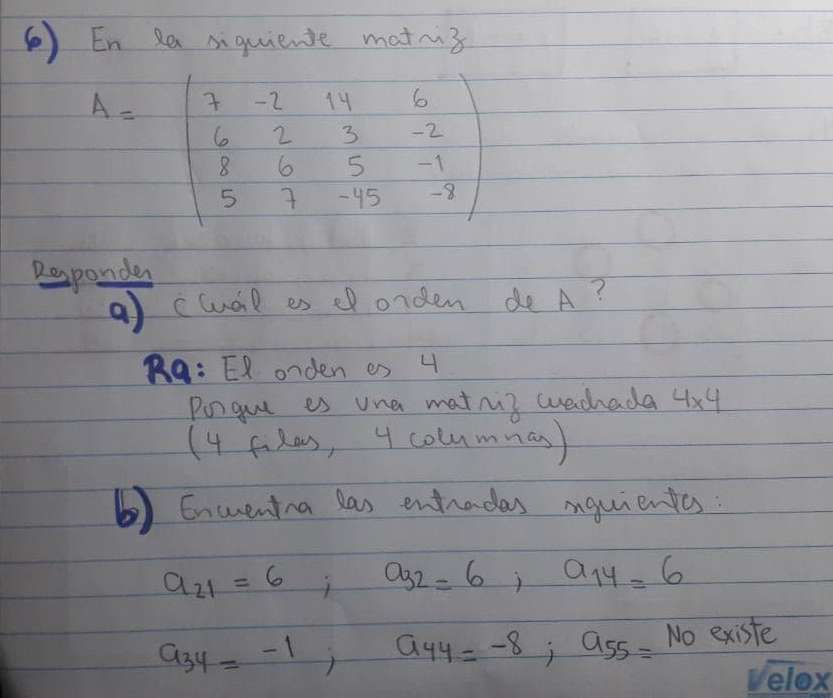 6) En la siguiente matriz
A = ( 7 -2 14 6
6 2 3 -2
8 6 5 -1
5 7 -45 -8 )
Responder
a) ¿Cuál es el orden de A?
Ra: El orden es 4
Porque es una matriz cuadrada 4x4
(4 filas, 4 columnas)
b) Encuentra las entradas siguientes:
a21 = 6 ; a32 = 6 ; a14 = 6
a34 = -1 ; a44 = -8 ; a55 = No existe
Velox